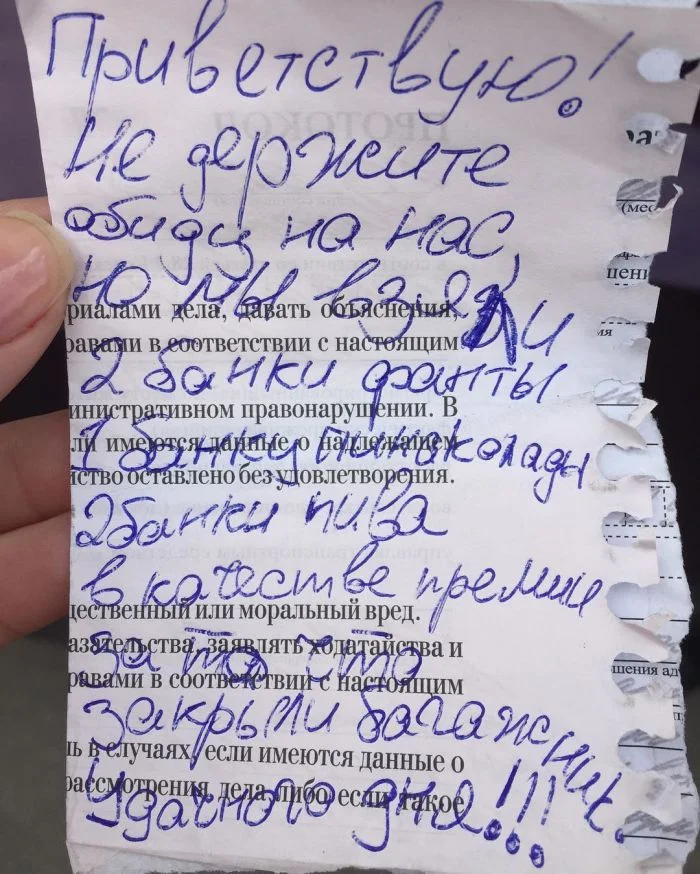 Приветствую!
Не держите
обиды на нас,
но мы взяли
риалами дела, давать объяснения,
равами в соответствии с настоящим
2 банки фанты
министративном правонарушении. В
ли имеются данные о надлежащем
1 банку пинаколады
йство оставлено без удовлетворения.
2 банки пива
в качестве премии
щественный или моральный вред.
азательства, заявлять ходатайства и
за то что
равами в соответствии с настоящим
закрыли багажник.
ь в случаях, если имеются данные о
рассмотрения дела либо если такое
Удачного дня!!!
ПРОТОКОЛ
(мес
шения ад